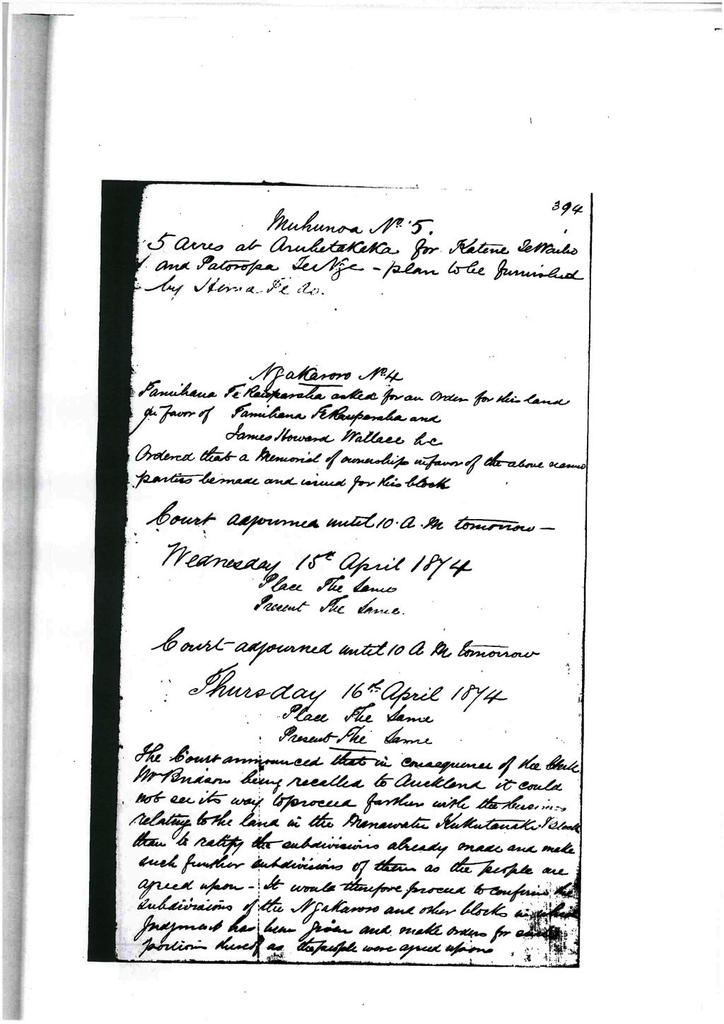 394
Muhunoa No. 5.
5 Acres at Aruhetakeka for Katene Te
and Patoropa Te Nge - plan to be furnished
by do.
Ngakaroro No. 4
Tamihana Te Rauparaha asked for an Order for this land
in favor of Tamihana Te Rauparaha and
James Howard Wallace
Ordered that a Memorial of ownership in favor of the above named
parties be made and issued for this block
Court adjourned until 10 A.M tomorrow -
Wednesday 15th April 1874
Place The Same
Present The Same.
Court adjourned until 10 A M tomorrow
Thursday 16th April 1874
Place The Same
Present The Same
The Court announced that in consequence of the Clerk
Mr being recalled to Auckland it could
not see its way to proceed further with the
relating to the land in the Manawatu Kukutauaki Block
than to ratify the subdivisions already made and make
such further subdivisions of them as the people are
agreed upon - It would therefore proceed to confirm the
subdivisions of the Ngakaroro and other blocks in which
Judgment has been given and make orders for such
portions thereof as the people were agreed upon